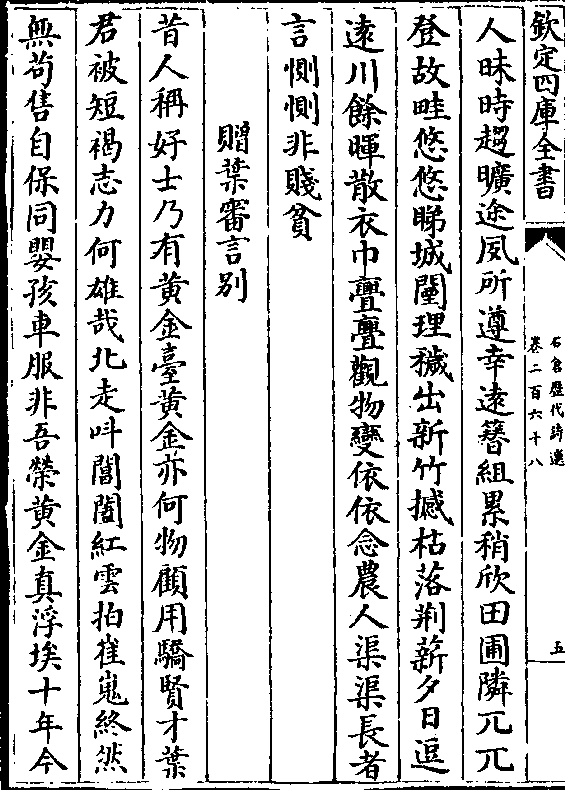 欽定四庫全書
石倉歷代詩選
卷二百六十八
五
人昧時趨曠途夙所遵幸遠簪組累稍欣田圃隣兀兀
登故畦悠悠睇城闉理穢出新竹撼枯落荆薪夕日逗
遠川餘暉散衣巾亹亹觀物變依依念農人渠渠長者
言惻惻非賤貧
贈葉審言別
昔人稱好士乃有黃金臺黃金亦何物顧用驕賢才葉
君被短褐志力何雄哉北走呌閶闔紅雲拍崔嵬終然
無苟售自保同嬰孩車服非吾榮黃金真浮埃十年今